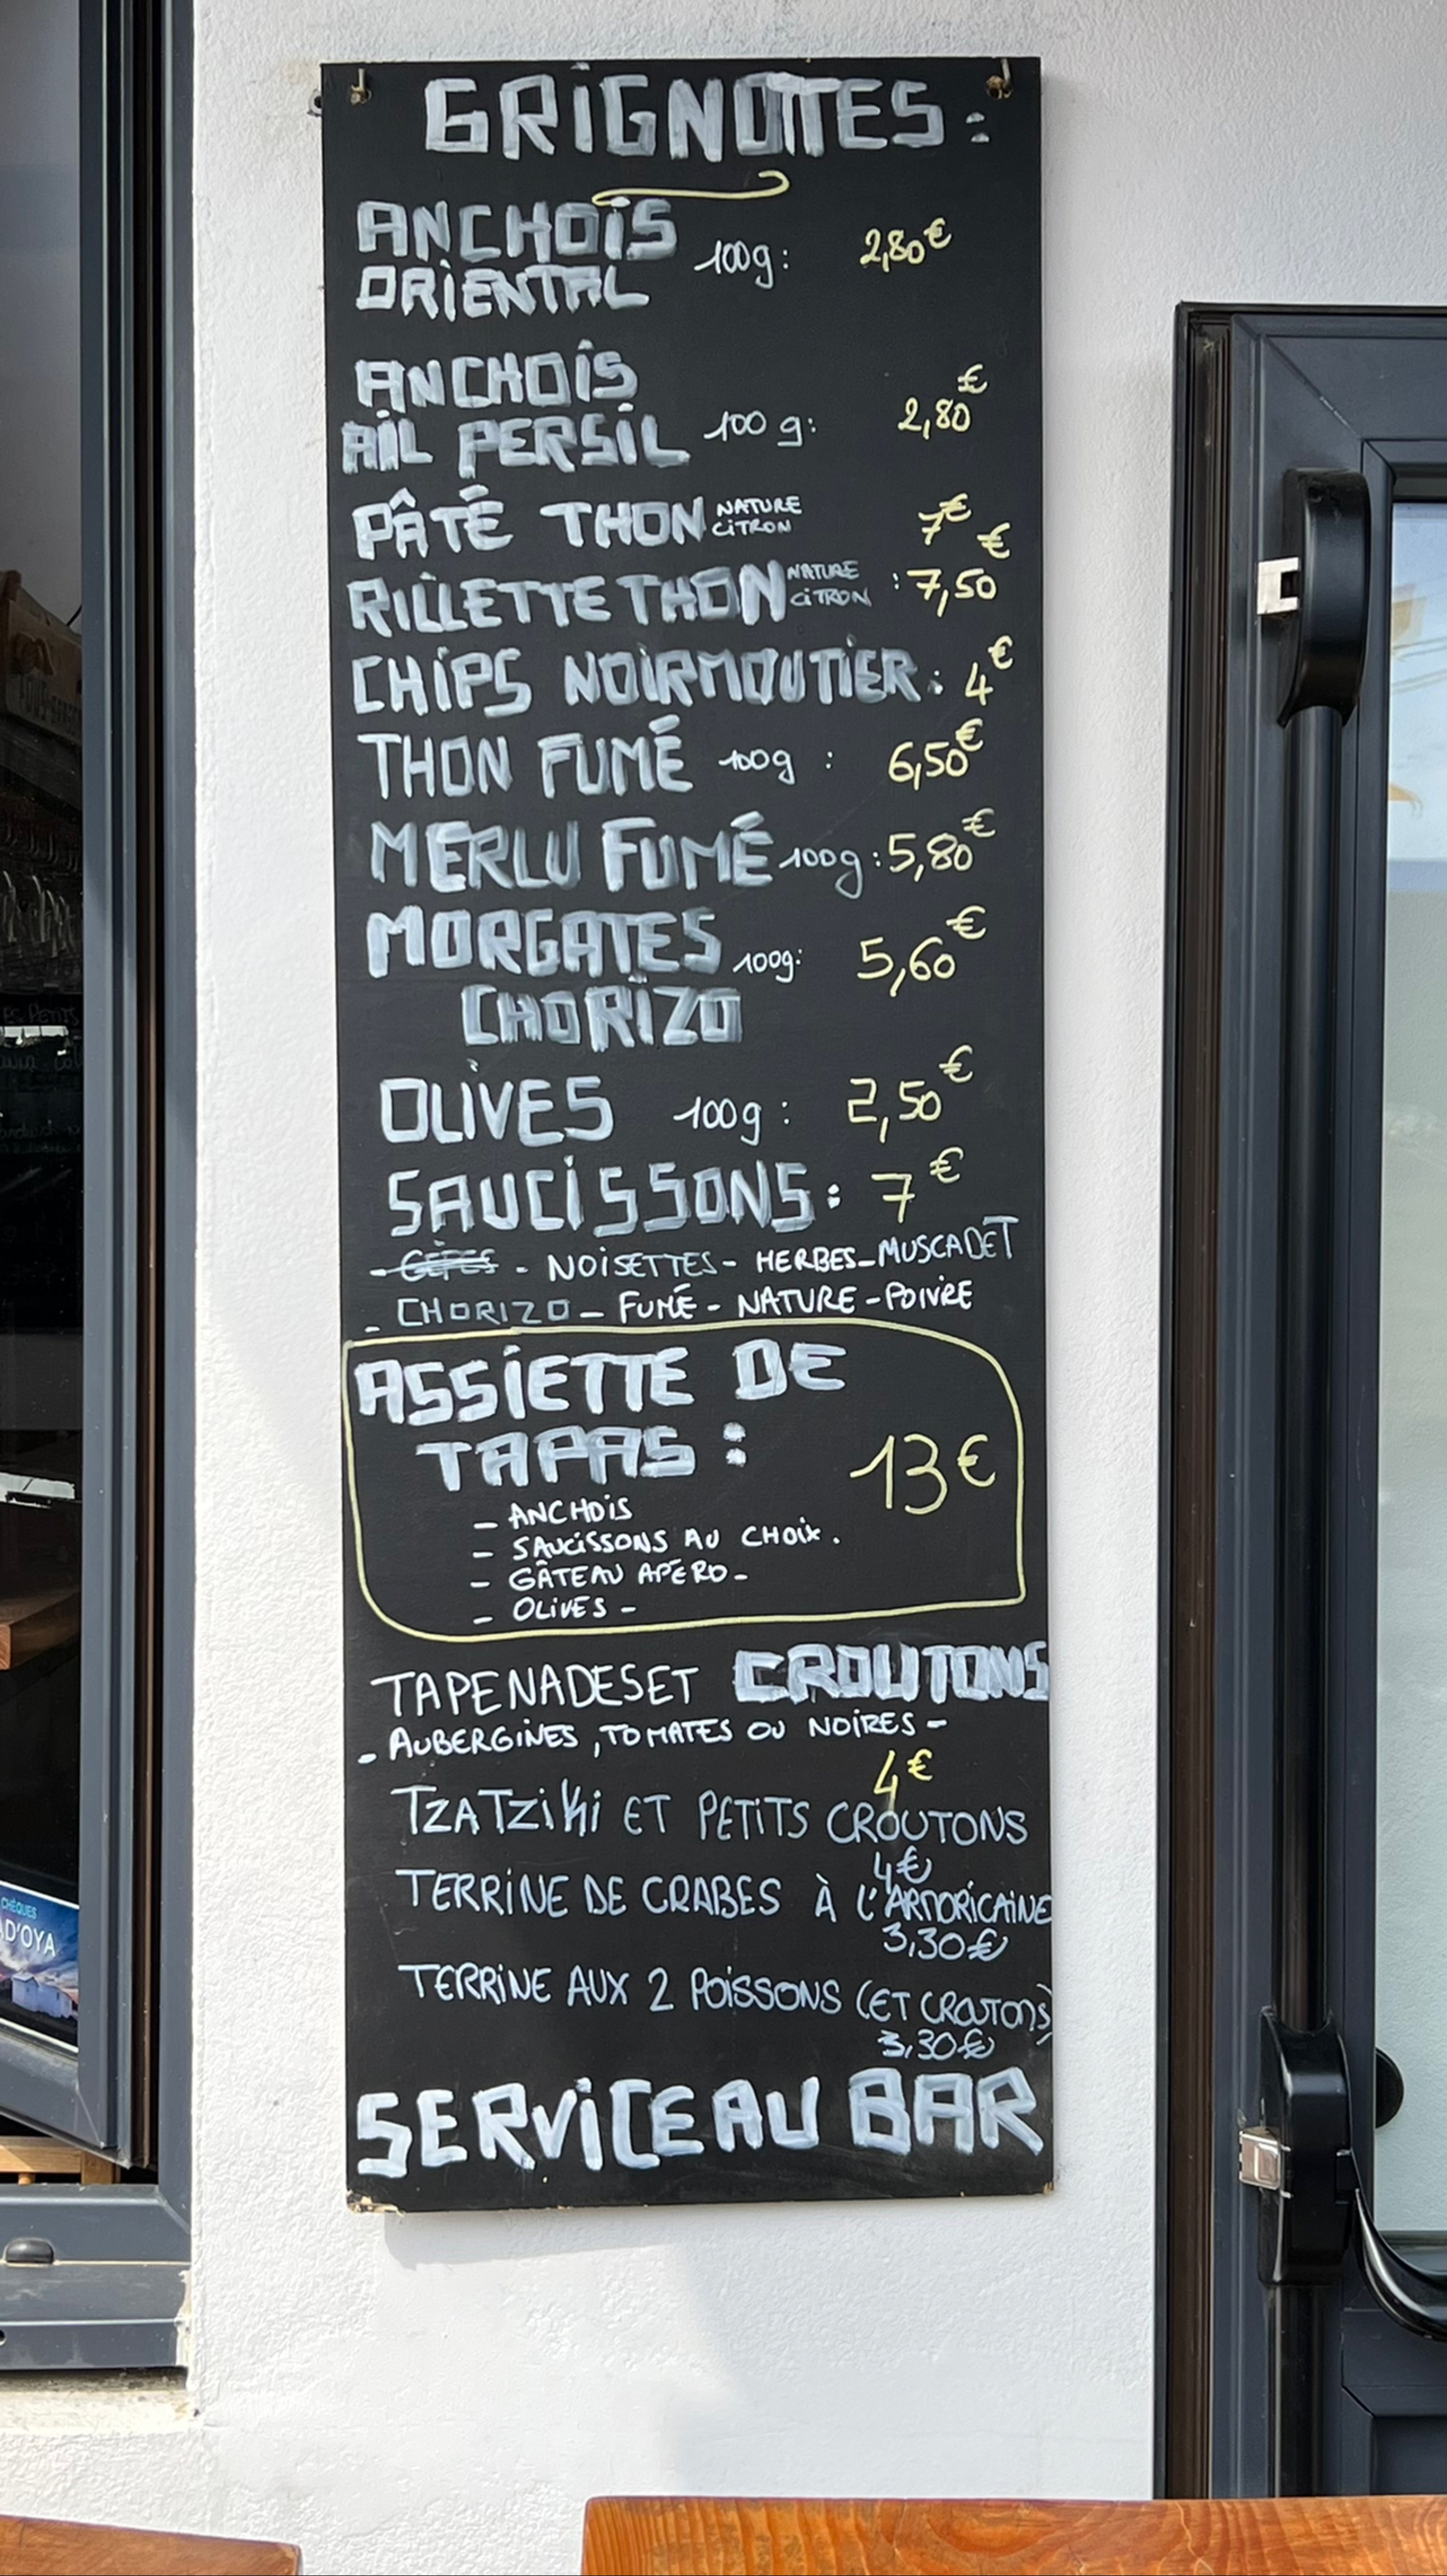 GRIGNOTTES :
ANCHOIS
ORIENTAL 100g : 2,80€
ANCHOIS
AIL PERSIL 100 g : 2,80€
PÂTÉ THON NATURE CITRON 7€
RILLETTE THON NATURE CITRON : 7,50€
CHIPS NOIRMOUTIER : 4€
THON FUMÉ 100g : 6,50€
MERLU FUMÉ 100g : 5,80€
MORGATES 100g : 5,60€
CHORIZO
OLIVES 100g : 2,50€
SAUCISSONS : 7€
- CÈPES - NOISETTES - HERBES - MUSCADET
- CHORIZO - FUMÉ - NATURE - POIVRE
ASSIETTE DE
TAPAS : 13€
- ANCHOIS
- SAUCISSONS AU CHOIX .
- GÂTEAU APÉRO -
- OLIVES -
TAPENADES ET CROUTONS
- AUBERGINES , TOMATES OU NOIRES -
4€
TZATZIKI ET PETITS CROUTONS
4€
TERRINE DE CRABES À L'ARMORICAINE
3,30€
TERRINE AUX 2 POISSONS (ET CROUTONS)
3,30€
SERVICE AU BAR
CHÈQUES
AD'OYA